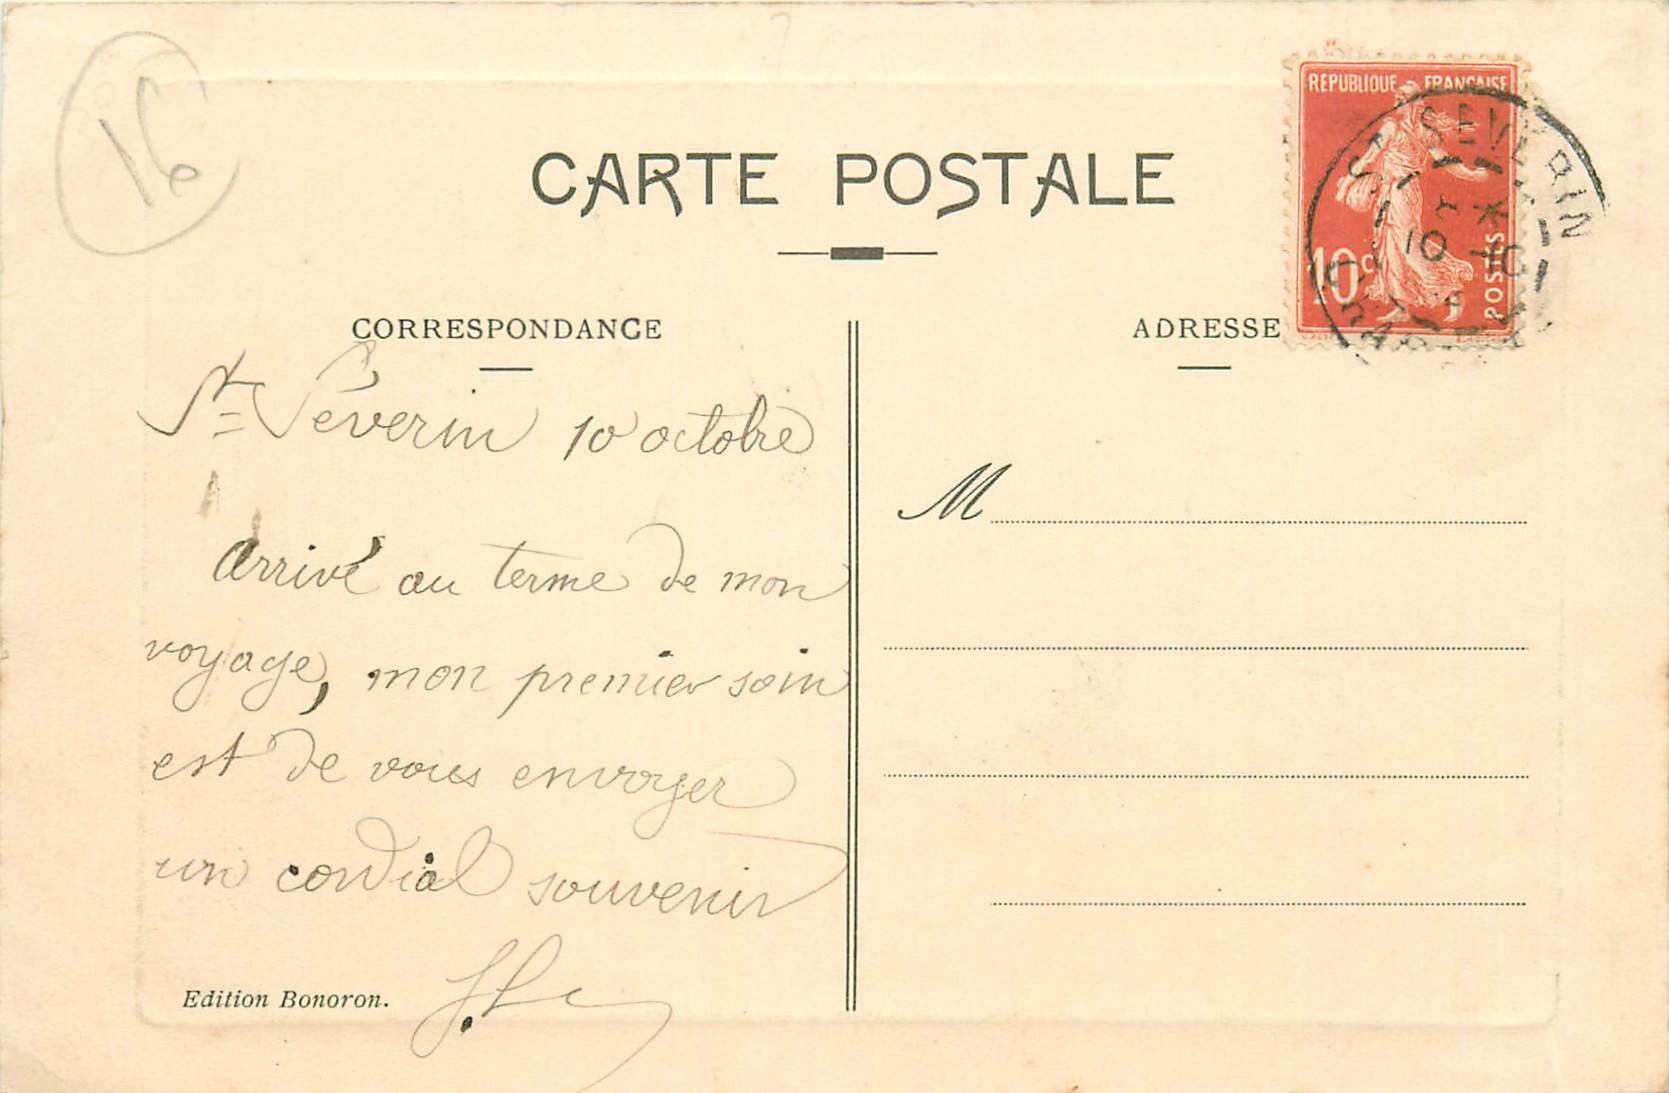 16
CARTE POSTALE
REPUBLIQUE FRANÇAISE
10c
POSTES
ST SEVERIN
CORRESPONDANCE
ADRESSE
St Séverin 10 octobre
Arrivé au terme de mon
voyage, mon premier soin
est de vous envoyer
un cordial souvenir
M
Edition Bonoron.